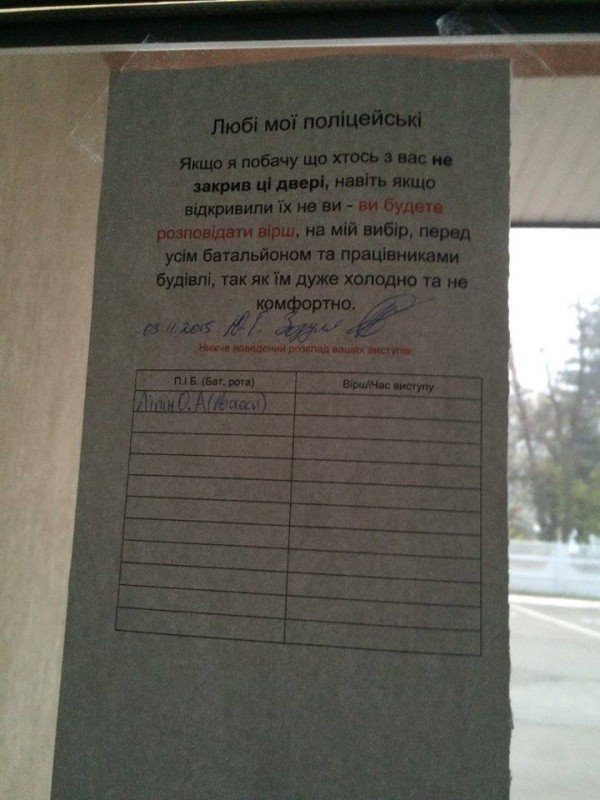 Любі мої поліцейські
Якщо я побачу що хтось з вас не
закрив ці двері, навіть якщо
відкривили їх не ви - ви будете
розповідати вірш, на мій вибір, перед
усім батальйоном та працівниками
будівлі, так як їм дуже холодно та не
комфортно.
03.11.2015 Ю.Г.
Нижче наведений розклад ваших виступів:
П.І.Б. (Бат, рота) Вірш\Час виступу
О.А